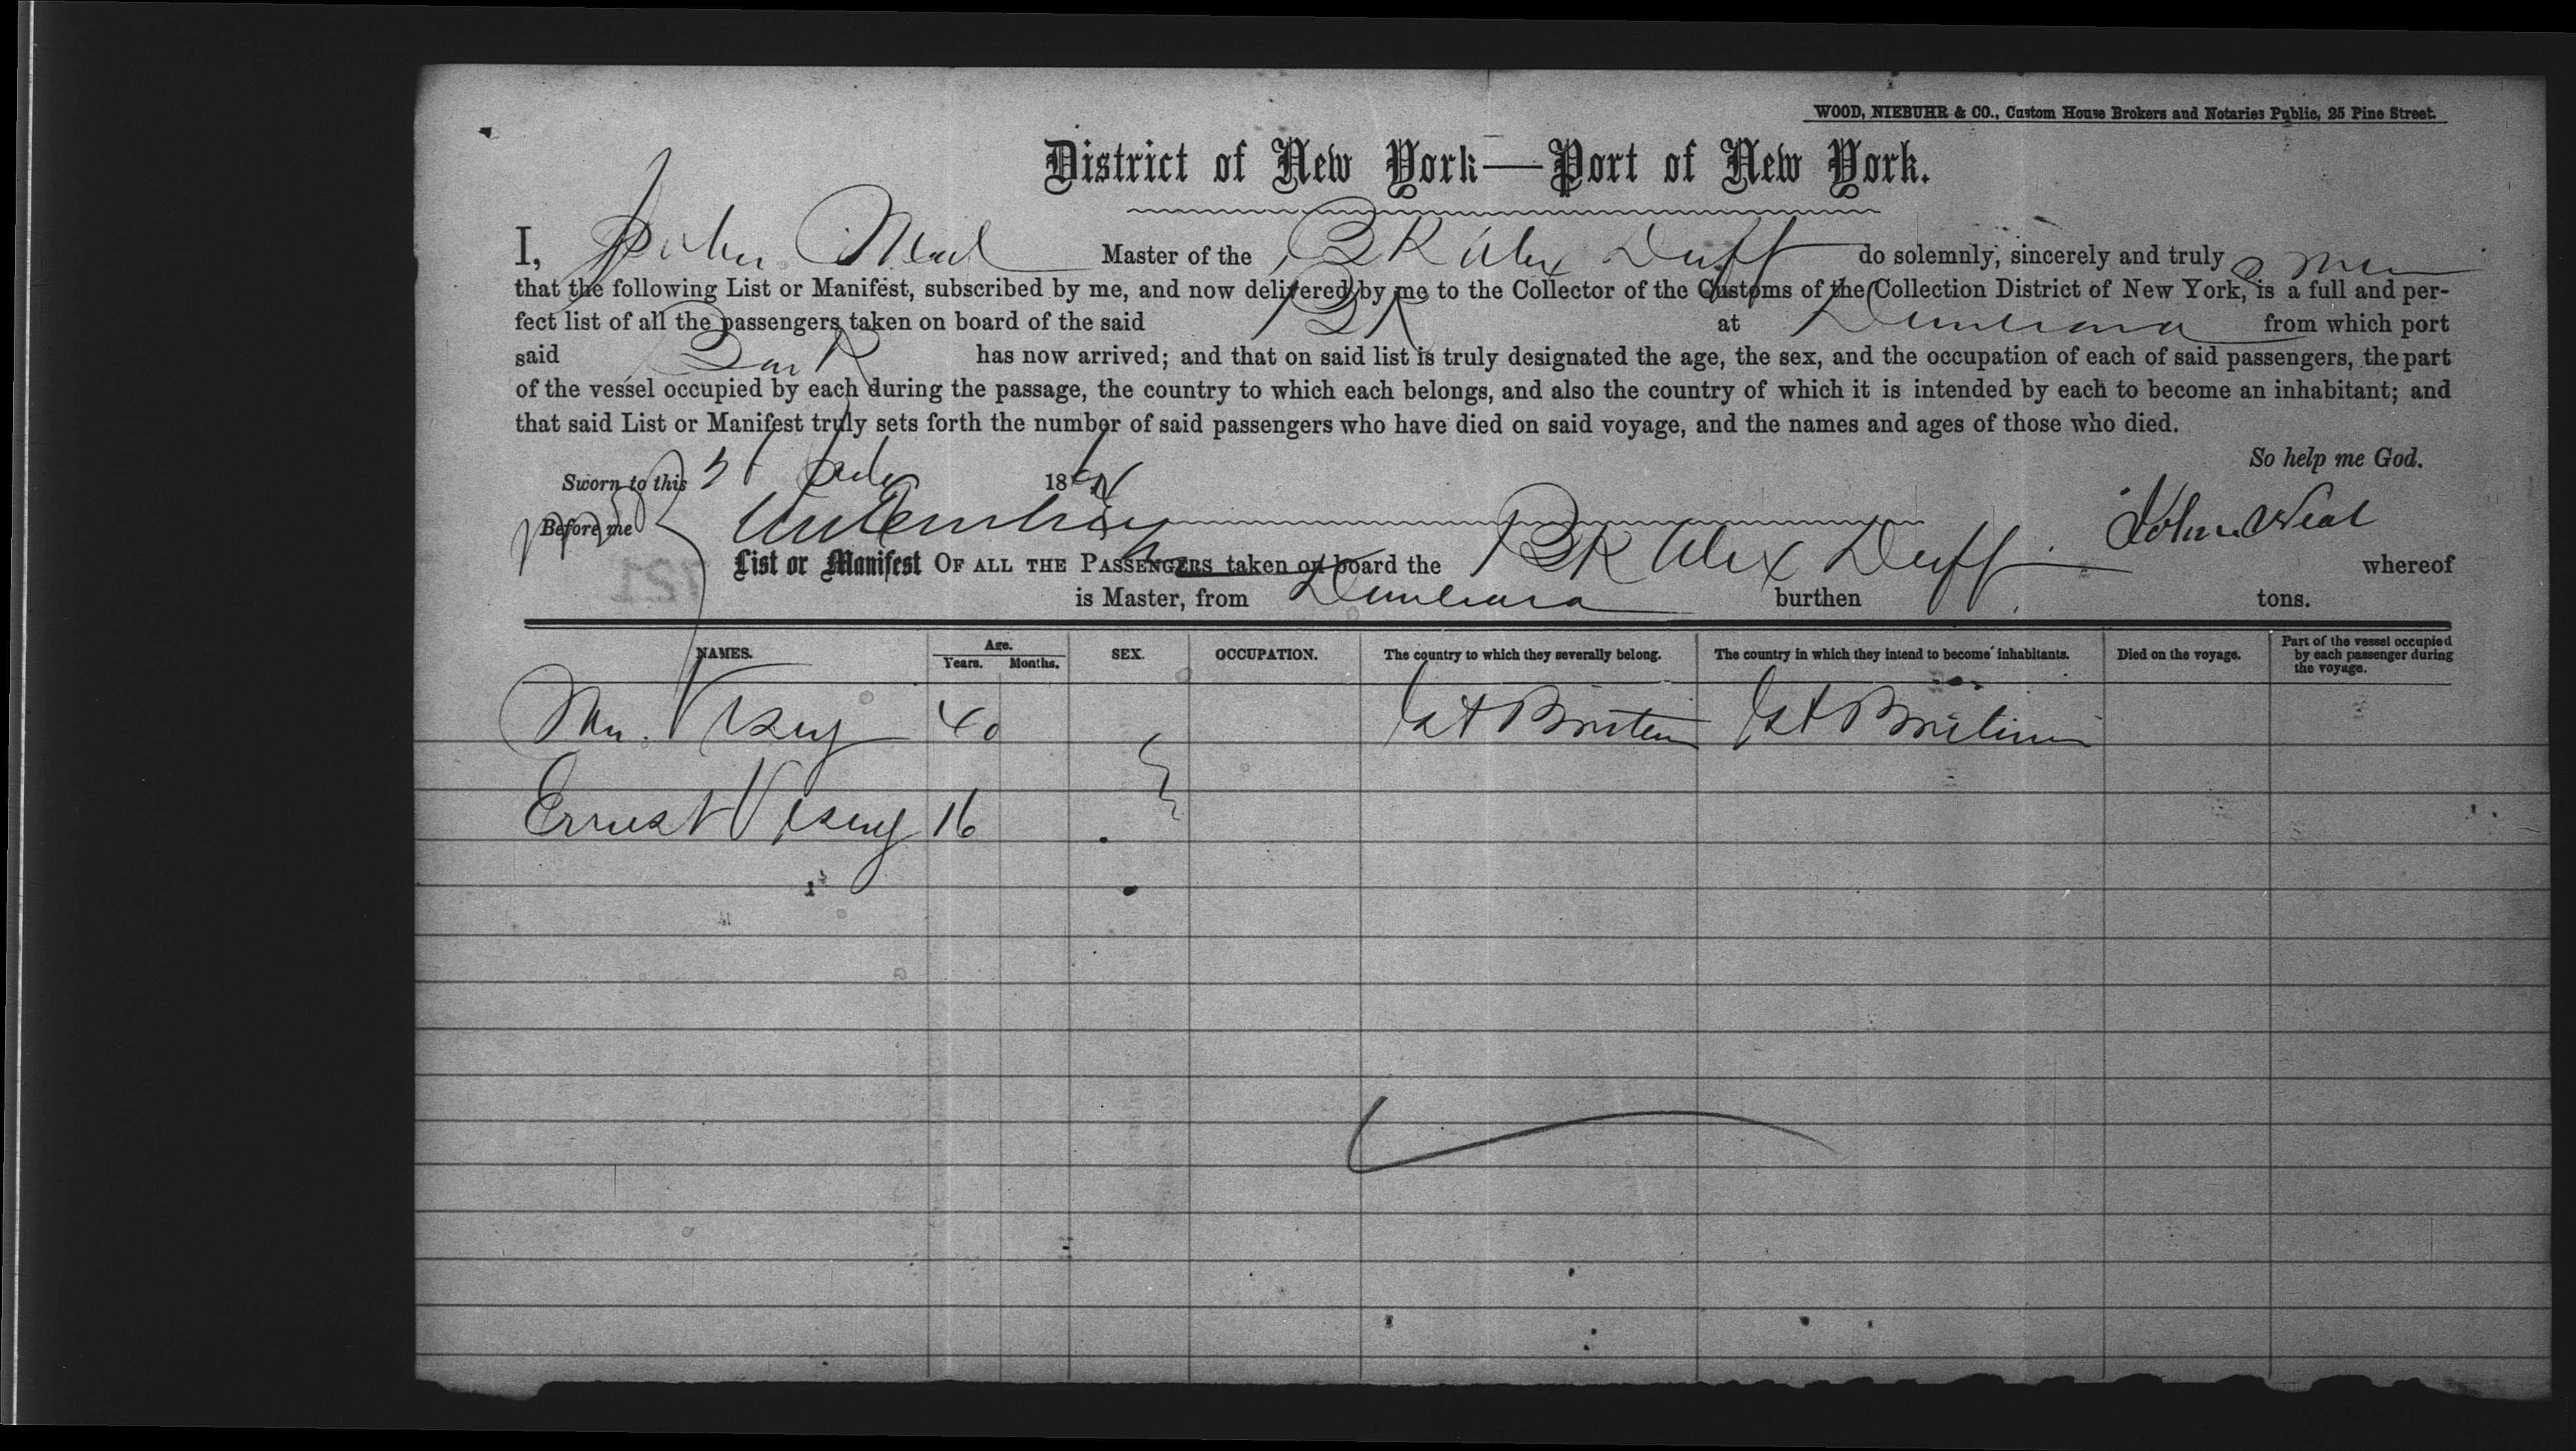 WOOD, NIEBUHR & CO., Custom House Brokers and Notaries Public, 25 Pine Street.
District of New York—Port of New York.
I, John Master of the BK Alex Duff do solemnly, sincerely and truly
that the following List or Manifest, subscribed by me, and now delivered by me to the Collector of the Customs of the Collection District of New York, is a full and per-
fect list of all the passengers taken on board of the said BK at Demerara from which port
said Bark has now arrived; and that on said list is truly designated the age, the sex, and the occupation of each of said passengers, the part
of the vessel occupied by each during the passage, the country to which each belongs, and also the country of which it is intended by each to become an inhabitant; and
that said List or Manifest truly sets forth the number of said passengers who have died on said voyage, and the names and ages of those who died.
So help me God.
Sworn to this 18
Before me
John Neal
List or Manifest OF ALL THE PASSENGERS taken on board the BK Alex Duff whereof
is Master, from Demerara burthen tons.
NAMES. Age. Years. Months. SEX. OCCUPATION. The country to which they severally belong. The country in which they intend to become inhabitants. Died on the voyage. Part of the vessel occupied by each passenger during the voyage.
Vesey 40 Gt Britain Gt Britain
Ernest Vesey 16